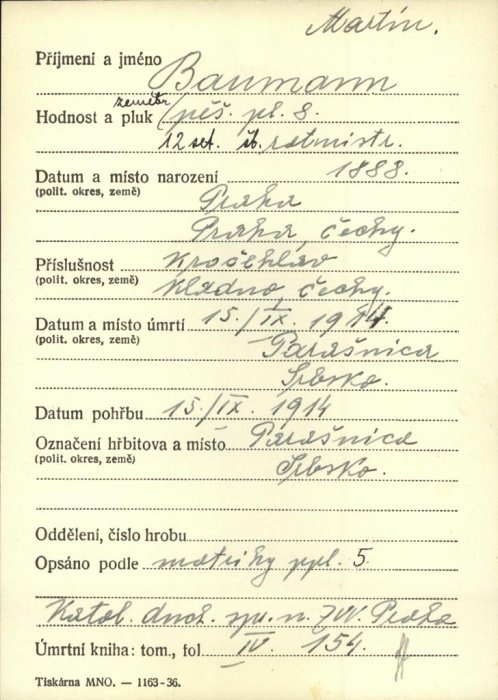 Martin.
Příjmení a jméno Baumann
Hodnost a pluk zeměbr. pěš. pl. 8.
12 set. rotmistr.
Datum a místo narození 1888.
(polit. okres, země) Praha
Praha, Čechy.
Příslušnost Kročehlav
(polit. okres, země) Kladno, Čechy.
Datum a místo úmrtí 15./IX. 1914.
(polit. okres, země) Parašnica
Srbsko.
Datum pohřbu 15./IX. 1914
Označení hřbitova a místo Parašnica
(polit. okres, země) Srbsko.
Oddělení, číslo hrobu
Opsáno podle matriky ppl. 5.
Katol. duch. spr. n. ZVV. Praha
Úmrtní kniha: tom., fol. IV. 154.
Tiskárna MNO. — 1163-36.